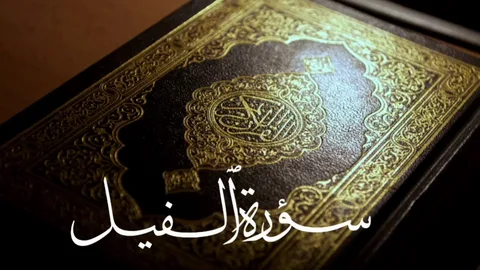 سورة ٱلفيل